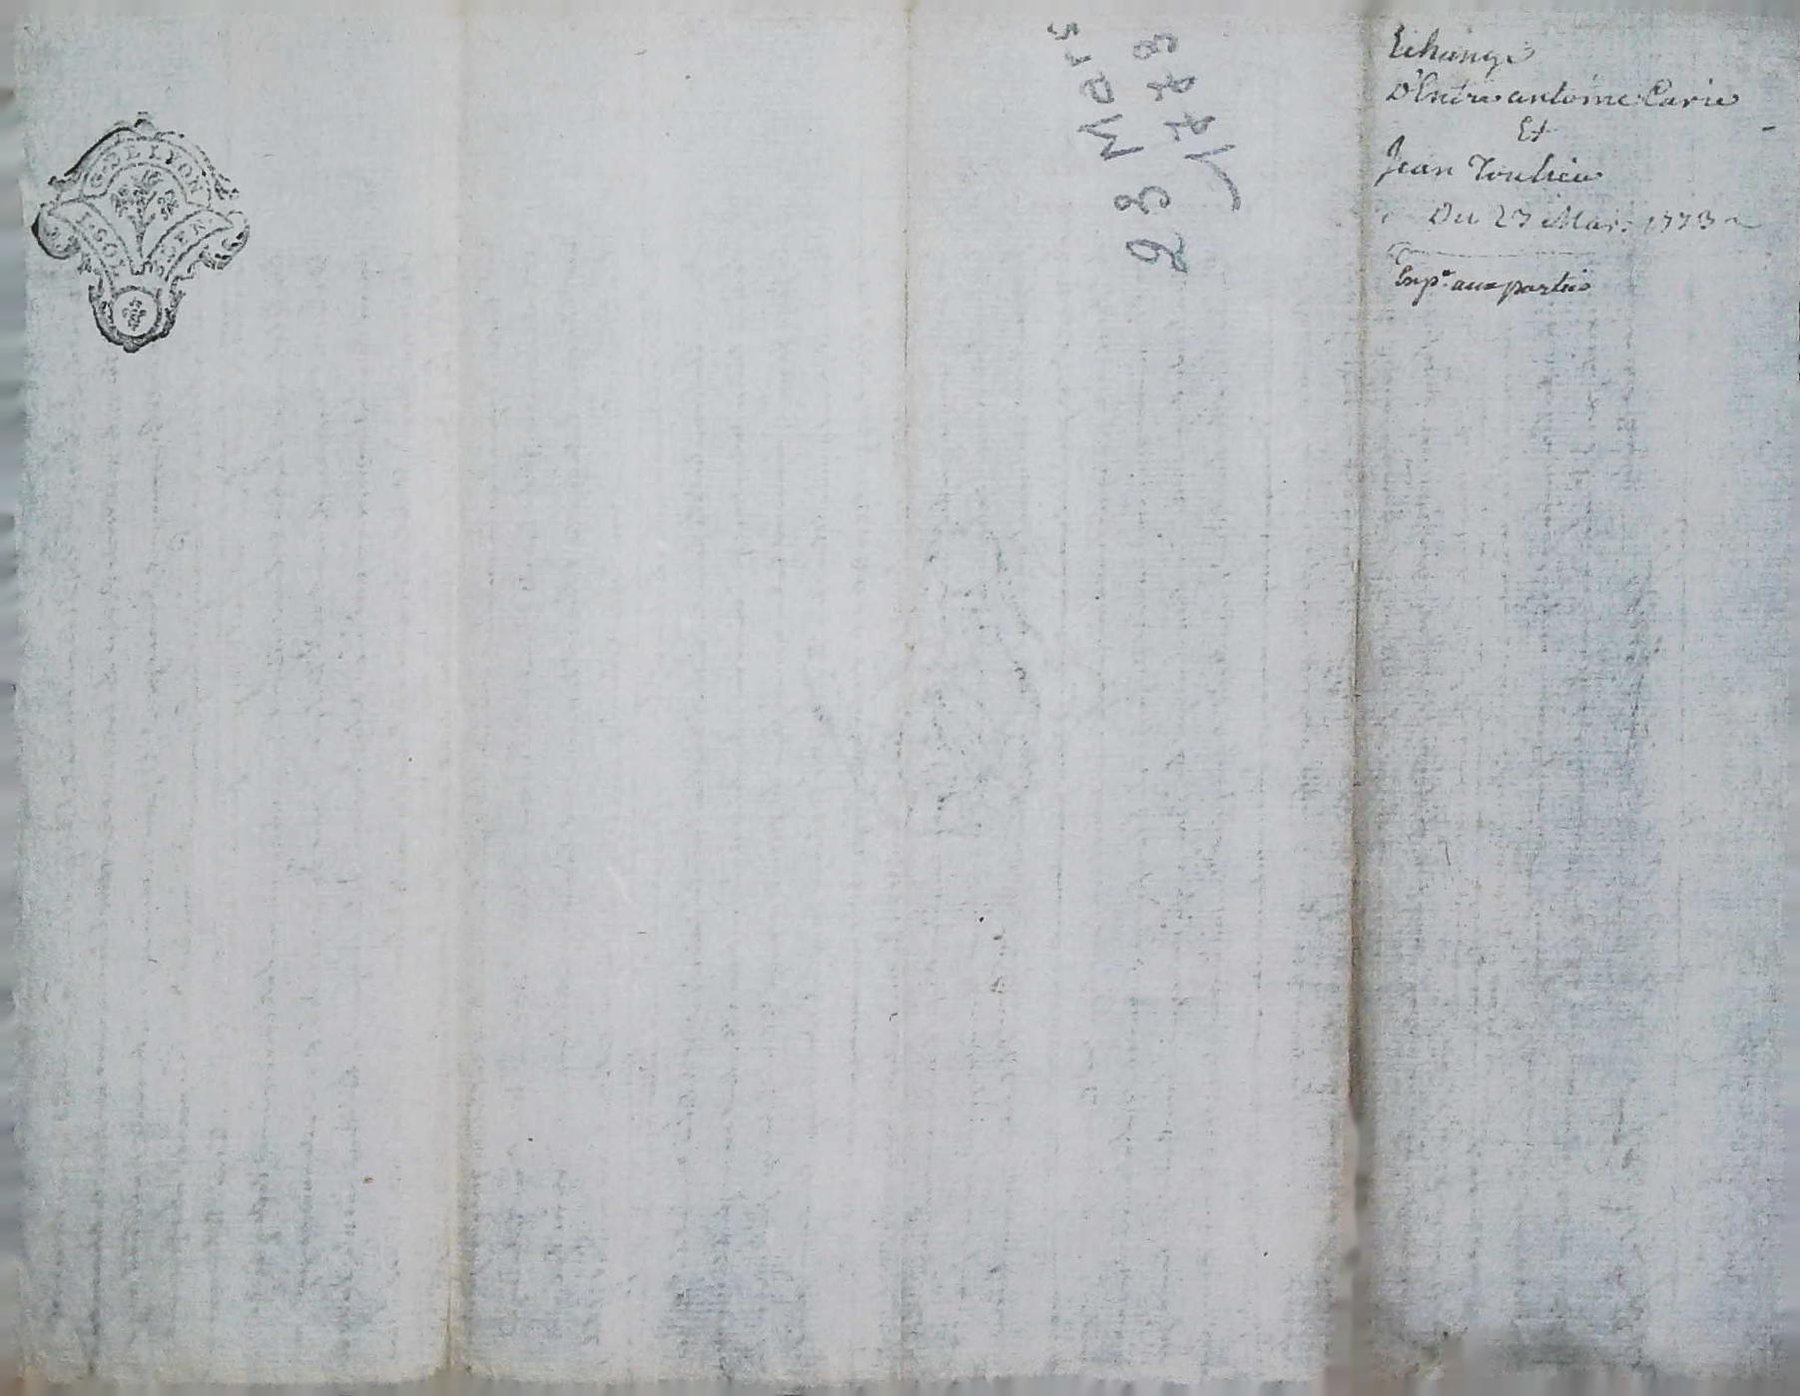 G. DE LYON
1 SOL
23 Mars
1773
Echange
D'Entre antoine Carie
Et
Jean
Du 23 Mars 1773
Exp.^e aux parties